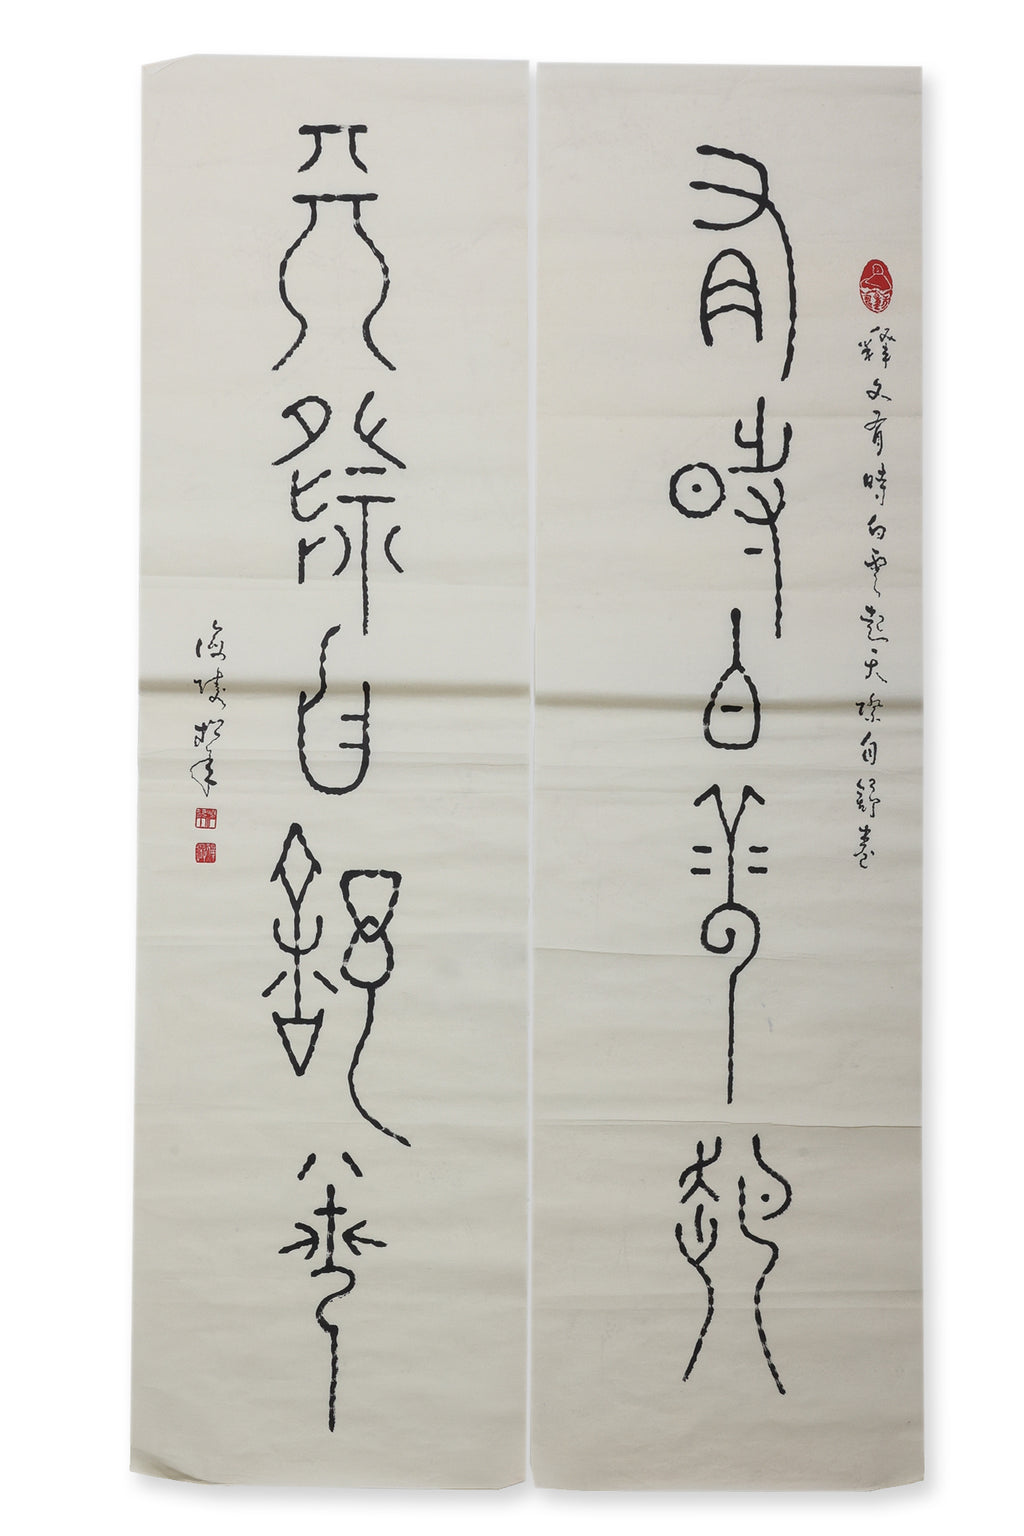 有時白雲起
釋文有時白雲起天際自舒卷
天際自舒卷
海陵